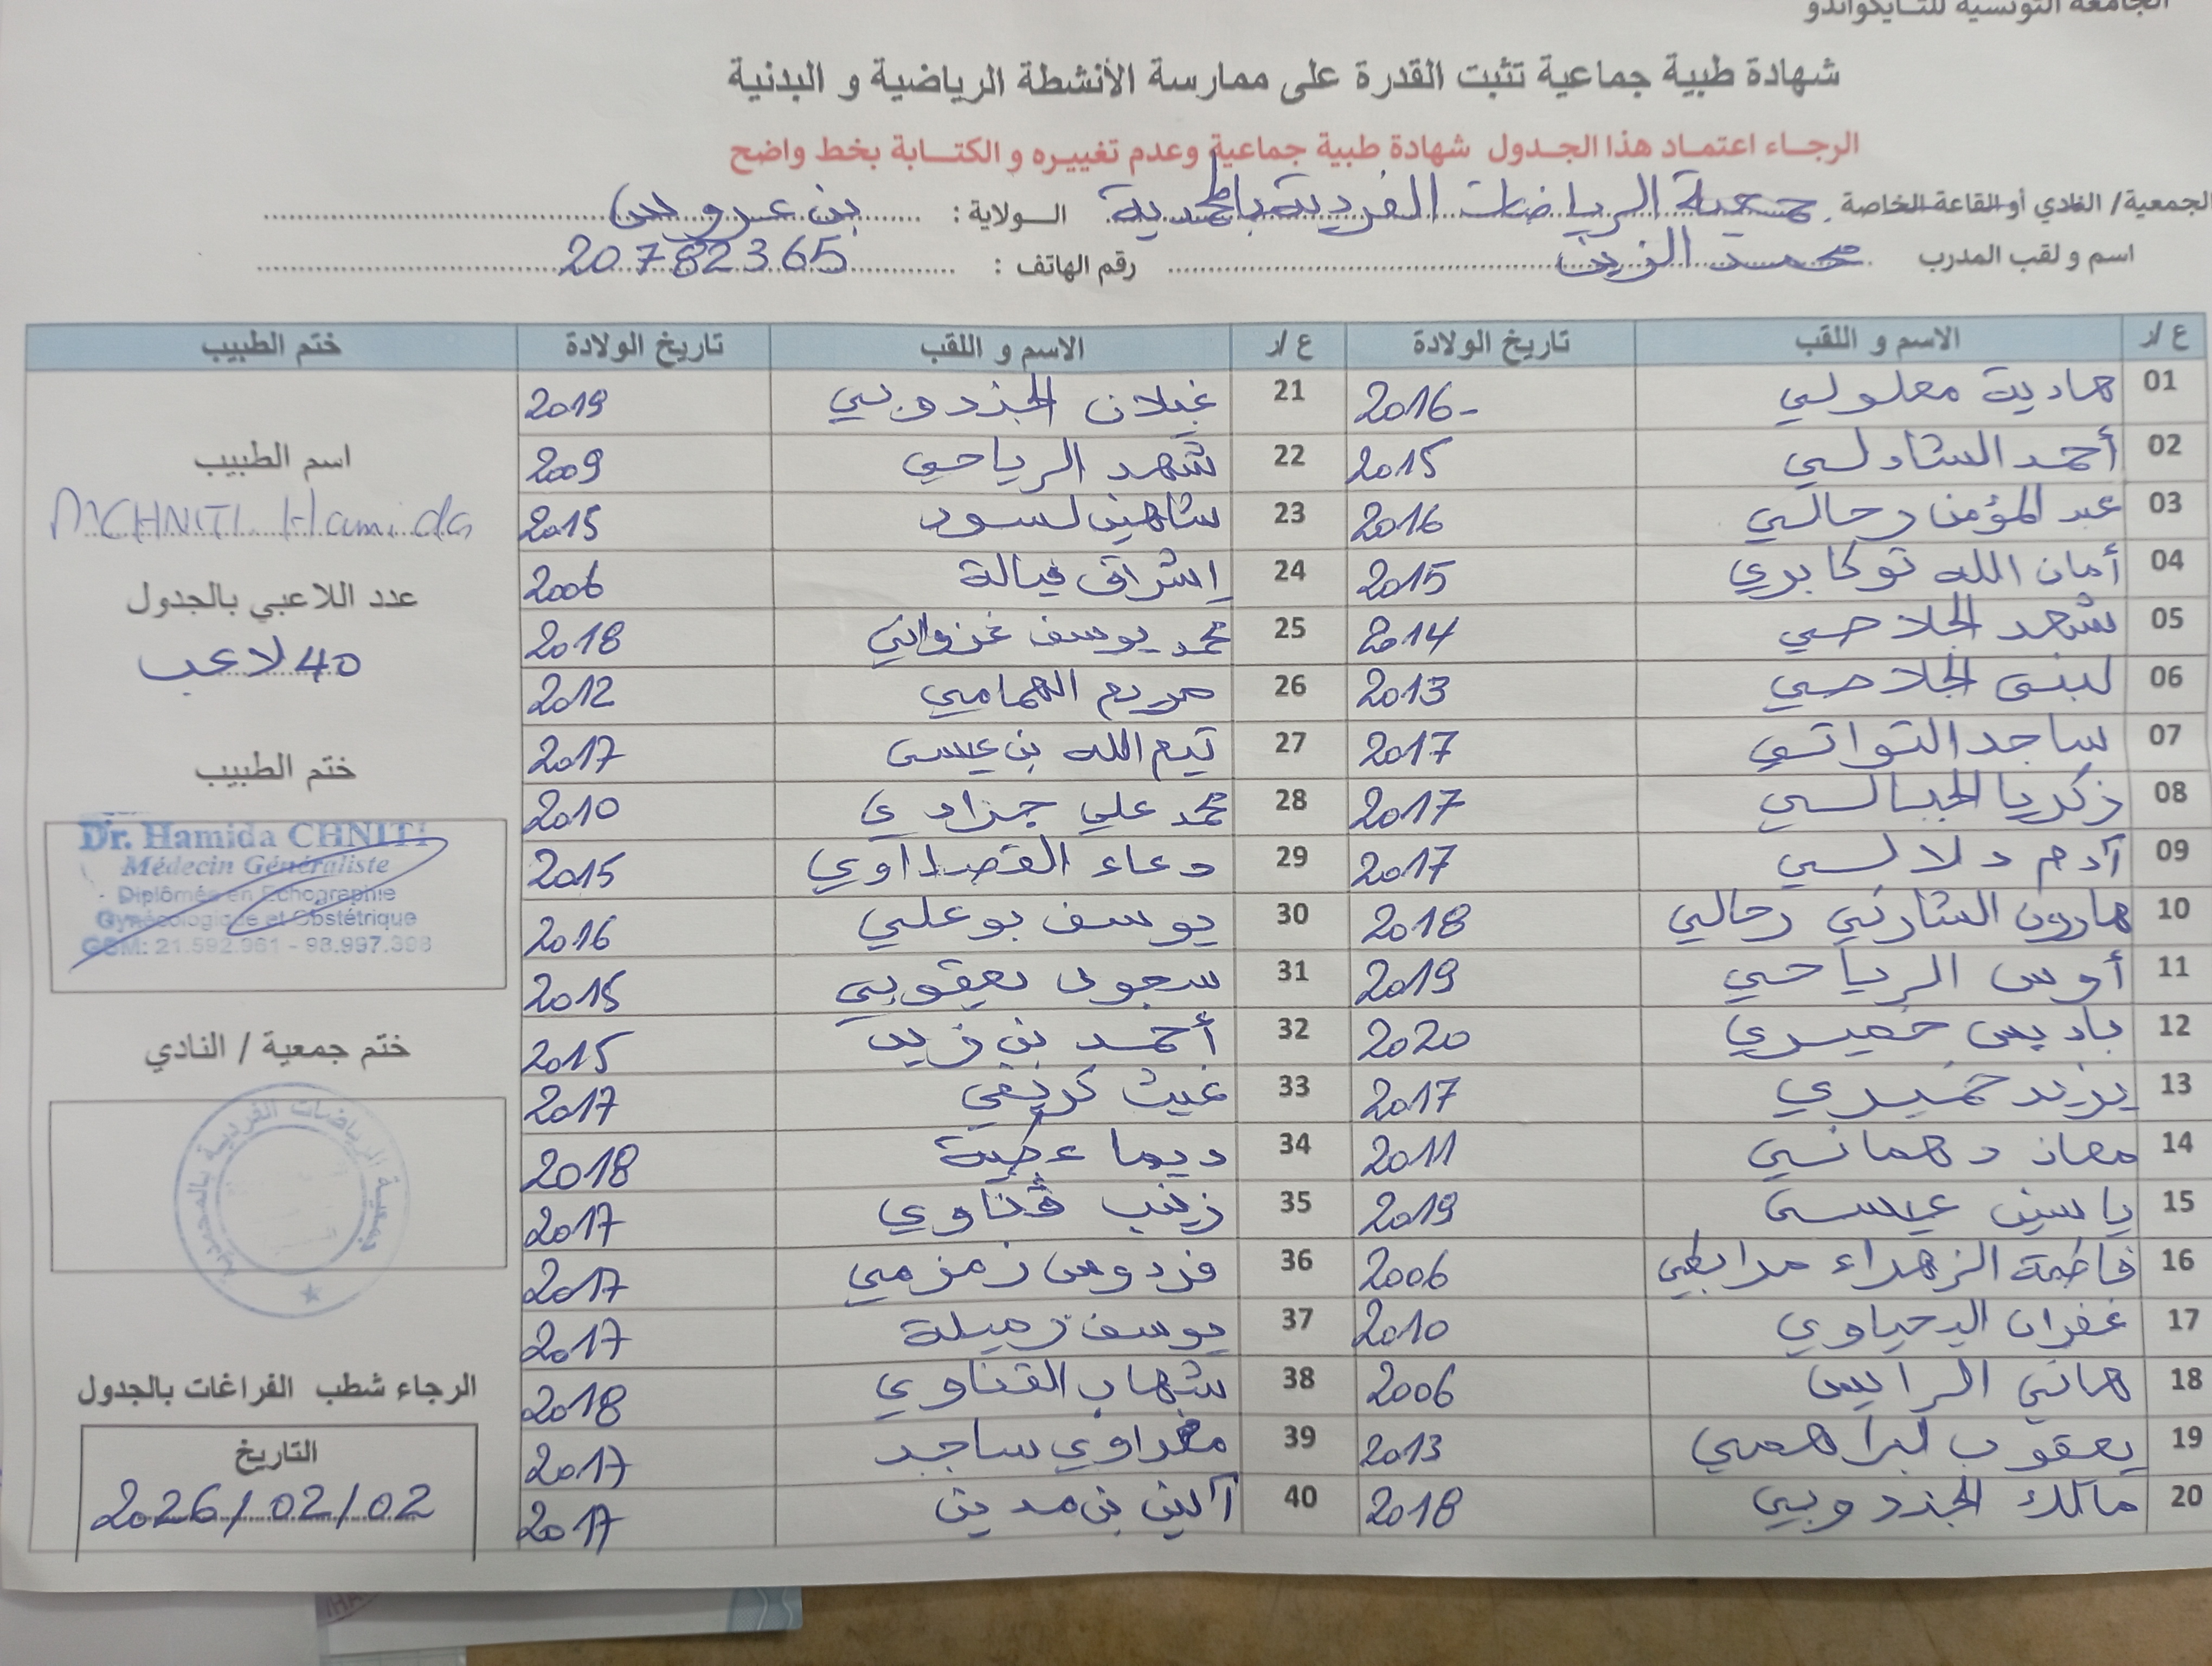 الجامعة التونسية للتايكواندو
شهادة طبية جماعية تثبت القدرة على ممارسة الأنشطة الرياضية و البدنية
الرجاء اعتماد هذا الجدول شهادة طبية جماعية وعدم تغييره و الكتابة بخط واضح
الجمعية/ النادي أو القاعة الخاصة جمعية الرياضات الفردية بالمحمدية الولاية : بن عروس
اسم و لقب المدرب محمد الزين رقم الهاتف : 20782365
ع/ر الاسم و اللقب تاريخ الولادة ع/ر الاسم و اللقب تاريخ الولادة ختم الطبيب
01 هادية معلولي 2016- 21 غيلان الجندوبي 2019
02 أحمد الشادلي 2015 22 شهد الرياحي 2009
03 عبد المؤمن رحالي 2016 23 شاهين لسود 2015
04 أمان الله توكابري 2015 24 إشراق فيالة 2006
05 شهد الجلاصي 2014 25 محمد يوسف غزواني 2018
06 لبنى الجلاصي 2013 26 مريم الهمامي 2012
07 ساجد التواتي 2017 27 تيم الله بن عيسى 2017
08 زكريا الجبالي 2017 28 محمد علي جزادي 2010
09 آدم دلالي 2017 29 دعاء 2015
10 هارون الشارني رحالي 2018 30 يوسف بوعلي 2016
11 أوس الرياحي 2019 31 سجود يعقوبي 2015
12 باديس خميري 2020 32 أحمد بن زيد 2015
13 يزيد خميري 2017 33 غيث كريفي 2017
14 معاذ دهماني 2011 34 ديما 2018
15 ياسين عيسى 2019 35 زينب ڨناوي 2017
16 فاطمة الزهراء مرابطي 2006 36 فردوس زمزمي 2017
17 غفران اليحياوي 2010 37 يوسف زميلة 2017
18 هاني الرايس 2006 38 شهاب القناوي 2018
19 يعقوب ابراهمي 2013 39 ساجد 2017
20 مالك الجندوبي 2018 40 آلين بن مدين 2017
اسم الطبيب
Dr CHNITI Hamida
عدد اللاعبي بالجدول
40 لاعب
ختم الطبيب
Dr. Hamida CHNITI
Médecin Généraliste
- Diplômée en Echographie
Gynécologique et Obstétrique
GSM: 21.592.961 - 98.997.308
ختم جمعية / النادي
جمعية الرياضات الفردية بالمحمدية
الرجاء شطب الفراغات بالجدول
التاريخ
2026/02/02